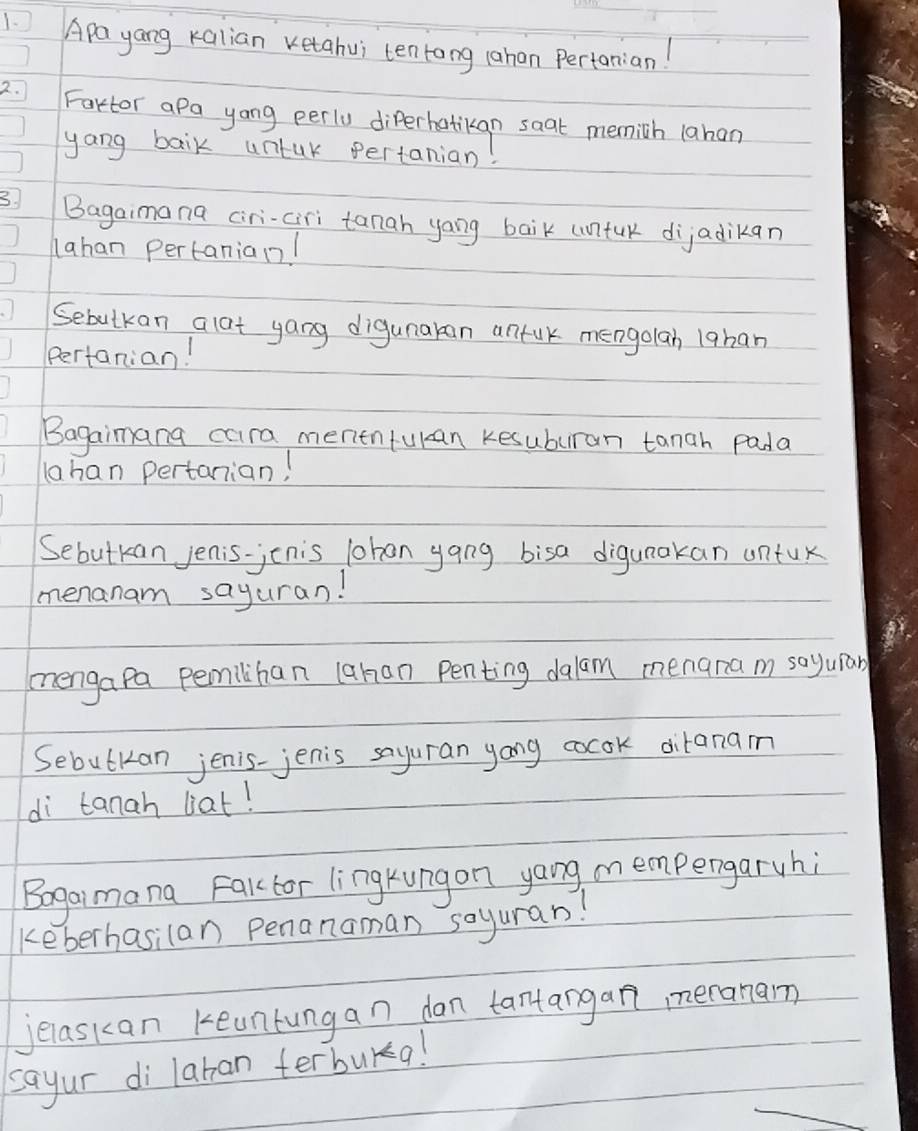 1. Apa yang kalian ketahui tentang lahan Pertanian!
2. Faktor apa yang perlu diperhatikan saat memilih lahan
yang baik untuk pertanian!
3. Bagaimana ciri-ciri tanah yang baik untuk dijadikan
lahan pertanian!
Sebutkan alat yang digunakan untuk mengolah lahan
pertanian!
Bagaimana cara menentukan kesuburan tanah pada
lahan pertanian!
Sebutkan jenis-jenis lahan yang bisa digunakan untuk
menanam sayuran!
mengapa pemilihan lahan penting dalam menanam sayuran
Sebutkan jenis-jenis sayuran yang cocok ditanam
di tanah liat!
Bagaimana Faktor lingkungan yang mempengaruhi
keberhasilan penanaman sayuran!
jelaskan keuntungan dan tantangan menanam
sayur di lahan terbuka!